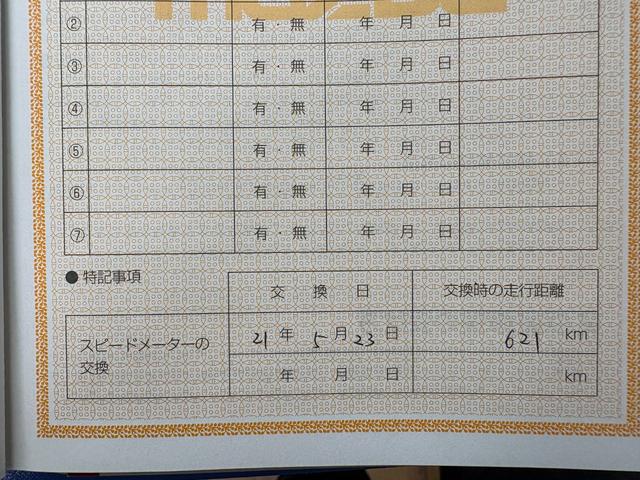 ② 有・無 年 月 日
③ 有・無 年 月 日
④ 有・無 年 月 日
⑤ 有・無 年 月 日
⑥ 有・無 年 月 日
⑦ 有・無 年 月 日
●特記事項
交換日 交換時の走行距離
スピードメーターの
交換
21年 5月23日 621 km
年 月 日 km